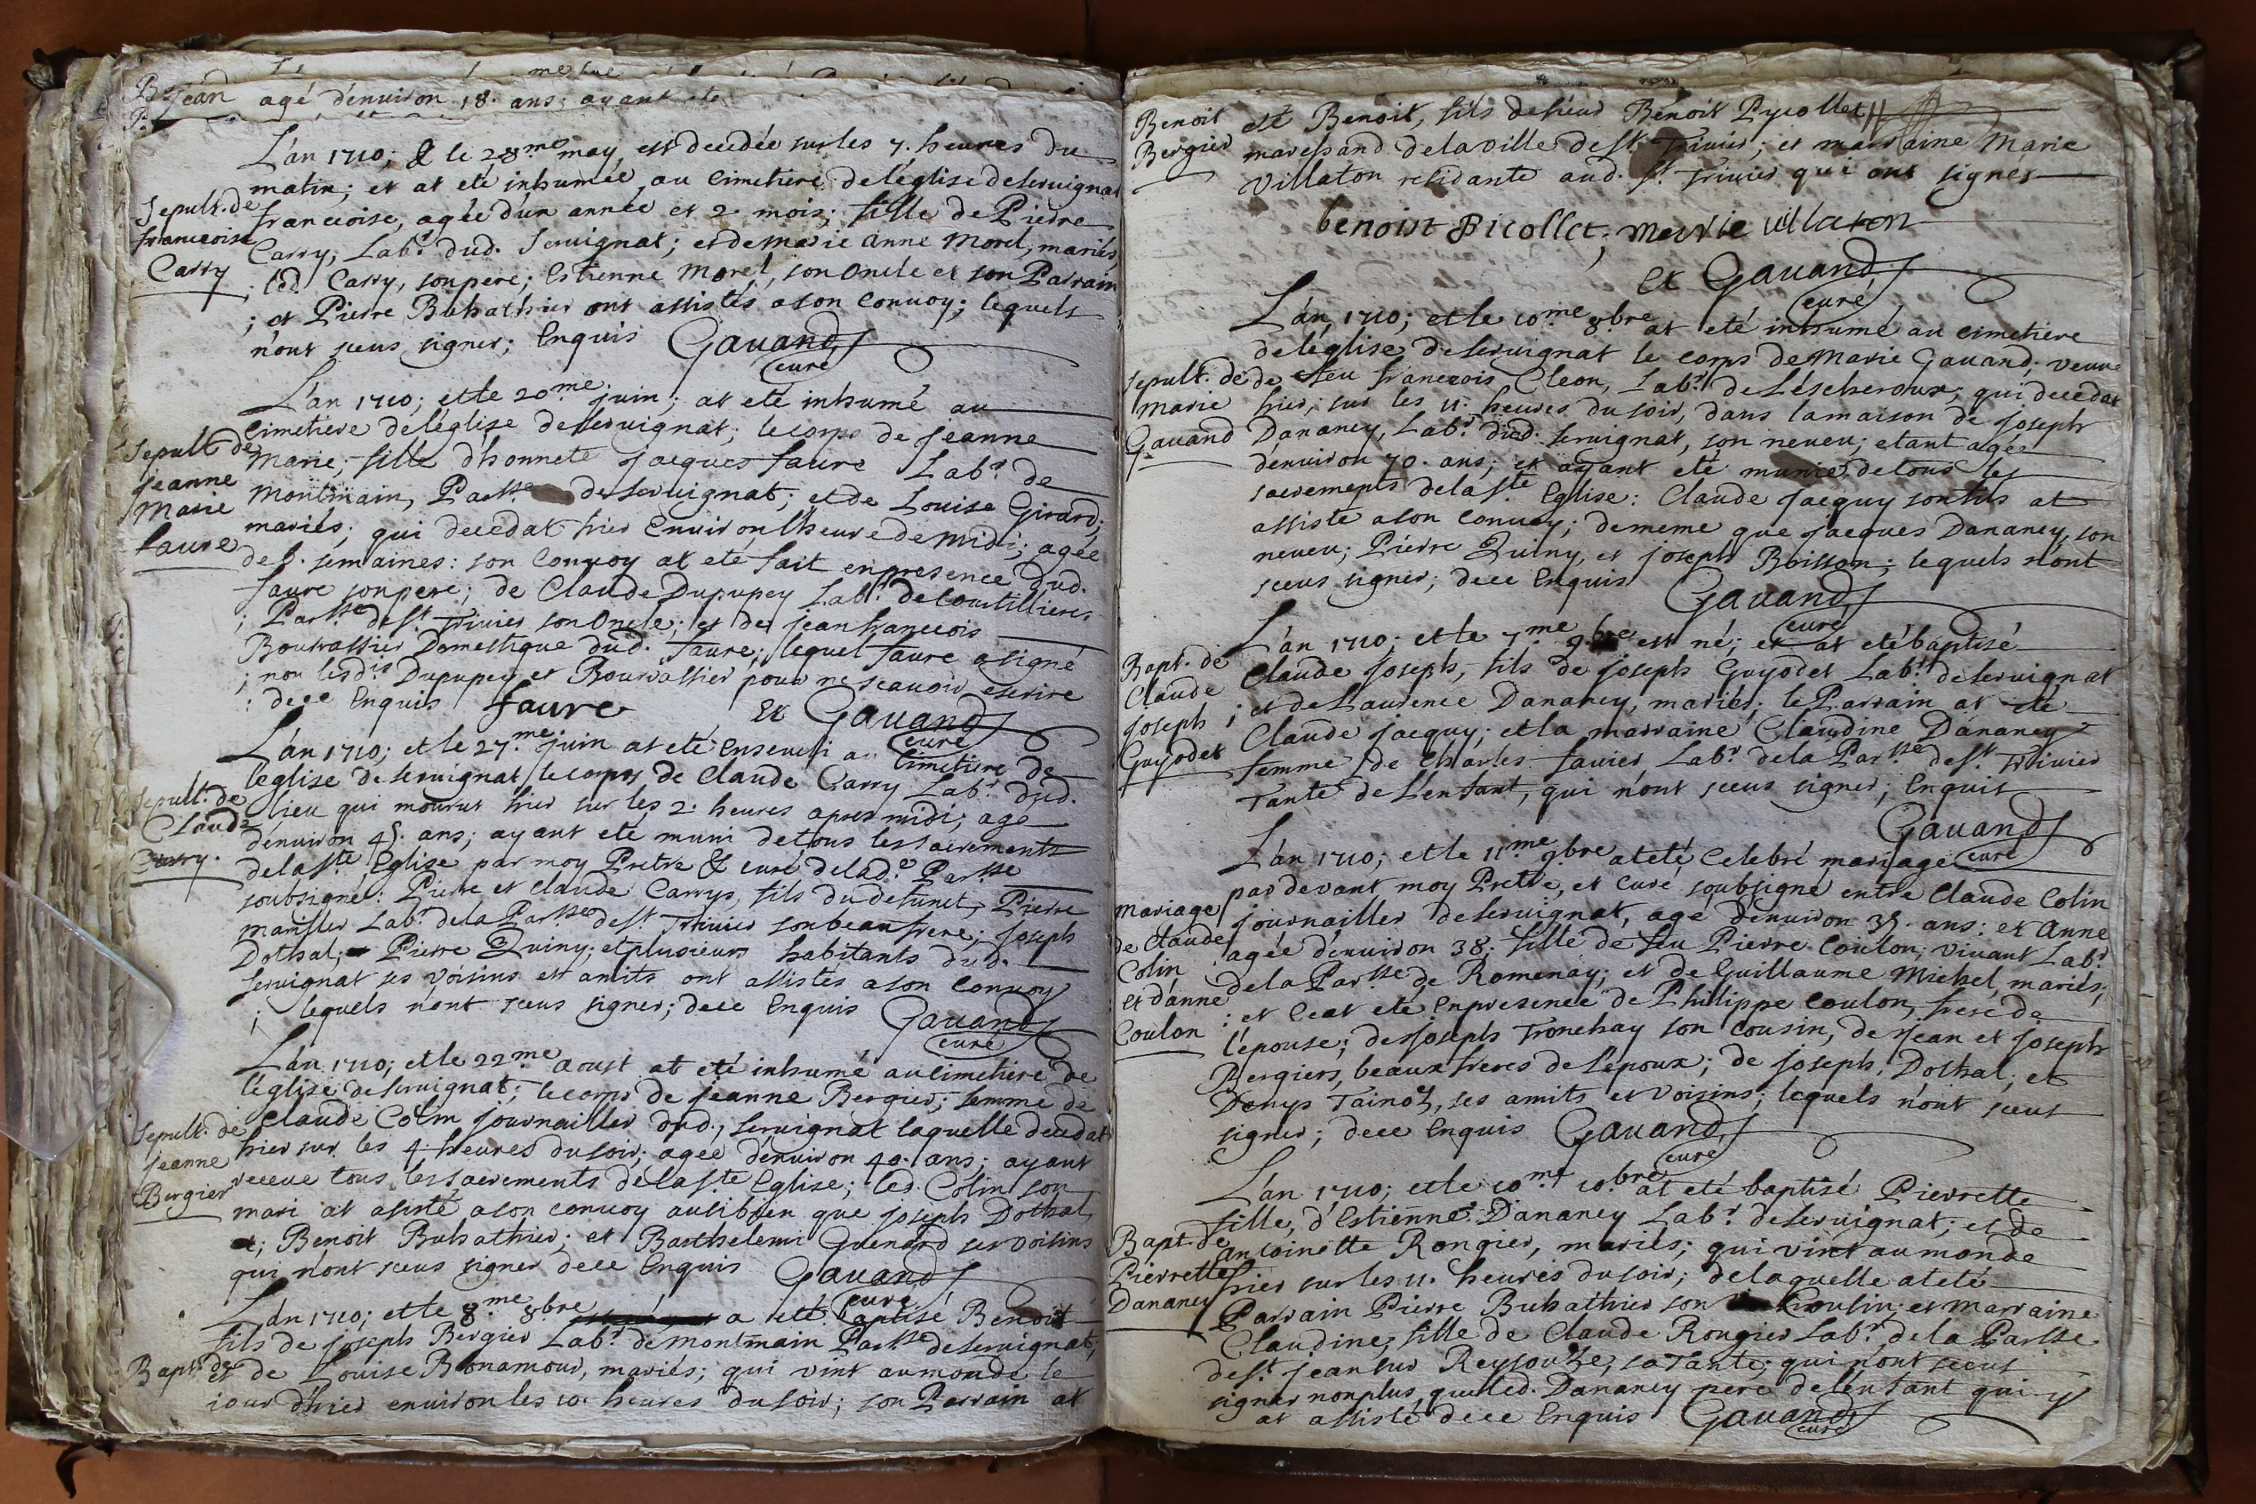 Jean agé d'enuiron 18. ans; ayant ete
L'an 1710; & le 28.me may, est decedée sur les 7. heures du
matin; et at eté inhumée au Cimetiere de l'eglise de Seruignat
Sepult. de
francoise
Carry
francoise, agée d'un année et 2. mois; fille de Pierre
Carry, Lab.r dud. Seruignat; et de Marie Anne Morel, mariés
; led. Carry, son pere; Estienne Morel, son Oncle et son Parrain
; et Pierre Buhathier ont assistés a son Conuoy; lequels
n'ont sceus signer; Enquis Gauand
curé
L'an 1710; et le 20.me juin; at eté inhumé au
Cimetiere de l'eglise de Seruignat; le corps de Jeanne
Sepult. de
Jeanne
Marie
faure
Marie; fille d'honnete Jacques faure Lab.r de
Montmain, Par.sse de Seruignat; et de Louise Girard;
mariés; qui decedat hier Enuiron l'heure de midi; agée
de 8. semaines: son Conuoy at eté fait en presence dud.
faure son pere; de Claude Dupupey Lab.r de Courtillieres
; Par.sse de S.t Triuier son Oncle; et de Jean francois
Bourrassier Domestique dud. faure; lequel faure a signé
; non lesd.is Dupupey et Bourrassier pour ne scauoir escrire
: dece Enquis faure Et Gauand
curé
L'an 1710; et le 27.me juin at eté Enseueli au Cimetiere de
l'eglise de Seruignat le corps de Claude Carry Lab.r dud.
Sepult. de
Claude
Carry.
lieu qui mourut hier sur les 2. heures apres midi; agé
d'enuiron 45. ans; ayant eté muni de tous les sacrements
de la s.te Eglise par moy Pretre & curé de lad.e Par.sse
soubsigné: Pierre et Claude Carrys, fils du defunct, Pierre
Manssier Lab.r de la Par.sse de S.t Triuier son beau frere; Joseph
Dothal; Pierre Quiny; et plusieurs habitants dud.
Seruignat ses voisins et amits ont assistés a son Conuoy
; lequels n'ont sceus signer; dece Enquis Gauand
curé
L'an 1710; et le 22.me aoust at eté inhumé au Cimetiere de
l'eglise de Seruignat; le corps de Jeanne Bergier; femme de
Sepult. de
Jeanne
Bergier
Claude Colin Journaillier dud. Seruignat laquelle decedat
hier sur les 4 heures du soir; agée d'enuiron 40. ans; ayant
receue tous les sacrements de la s.te Eglise; led. Colin son
mari at assisté a son conuoy aussi bien que Joseph Dothal
; Benoit Buhathier; et Barthelemi Guenard ses voisins
qui n'ont sceus signer dece Enquis Gauand
curé
L'an 1710; et le 8.me 8.bre a eté baptisé Benoit
fils de Joseph Bergier Lab.r de Montmain Par.sse de Seruignat,
Bapt. de
et de Louise Bonamour, mariés; qui vint au monde le
jour d'hier enuiron les 10. heures du soir; son Parrain at
Benoit
Bergier
eté Benoit, fils de sieur Benoit Pycollet
marchand de la ville de S.t Triuier; et marraine Marie
Villaton residante aud. S.t Triuier qui ont signés
benoist Bicollet, Marie villaton
et Gauand
curé
L'an 1710; et le 10.me 8.bre at eté inhumé au cimetiere
de l'eglise de Seruignat le corps de Marie Gauand; veuue
Sepult. de
Marie
Gauand
de feu francois Cleon, Lab.r de Lescheroux; qui decedat
hier; sur les 11. heures du soir, dans la maison de Joseph
Dananey, Lab.r dud. Seruignat, son neueu; etant agée
d'enuiron 70. ans; et ayant eté munie de tous les
sacrements de la s.te Eglise: Claude Jacquy son fils at
assisté a son Conuoy; de meme que Jacques Dananey, son
neueu; Pierre Quiny, et Joseph Boisson; lequels n'ont
sceus signer; dece Enquis Gauand
curé
L'an 1710; et le 7.me 9.bre est né; et at eté baptisé
Bapt. de
Claude
Joseph
Guyodet
Claude Joseph, fils de Joseph Guyodet Lab.r de Seruignat
; et de Laurence Dananey, mariés; le Parrain at eté
Claude Jacquy; et la marraine Claudine Dananey
femme de Charles fauier Lab.r de la Par.sse de S.t Triuier
Tante de L'enfant, qui n'ont sceus signer; Enquis
Gauand
curé
L'an 1710; et le 11.me 9.bre at eté Celebré mariage
par devant moy Pretre, et Curé soubsigné entre Claude Colin
Mariage
de Claude
Colin
et d'anne
Coulon
journaillier de Seruignat, agé d'enuiron 35. ans: et Anne
agée d'enuiron 38. fille de feu Pierre Coulon; viuant Lab.r
de la Par.sse de Romenay; et de Guillaume Michel, mariés;
: et Ceat eté En presence de Philippe Coulon, frere de
l'épouse; de Joseph Tronchay son Cousin, de Jean et Joseph
Bergiers, beaux freres de l'epoux; de Joseph Dothal; et
Denys Tainoz, ses amits et voisins; lequels n'ont sceus
signer; dece Enquis Gauand
curé
L'an 1710; et le 10.me 10.bre at eté baptisé Pierrette
fille, d'Estienne Dananey Lab.r de Seruignat; et de
Bapt. de
Pierrette
Dananey
Antoinette Rongier, mariés; qui vint au monde
hier sur les 11. heures du soir; de laquelle at eté
Parrain Pierre Buhathier son Cousin; et Marraine
Claudine, fille de Claude Rongier Lab.r de la Par.sse
de S.t Jean sur Reysouze, sa Tante; qui n'ont sceus
signer non plus que led. Dananey pere de l'enfant qui y
at assisté dece Enquis Gauand
curé